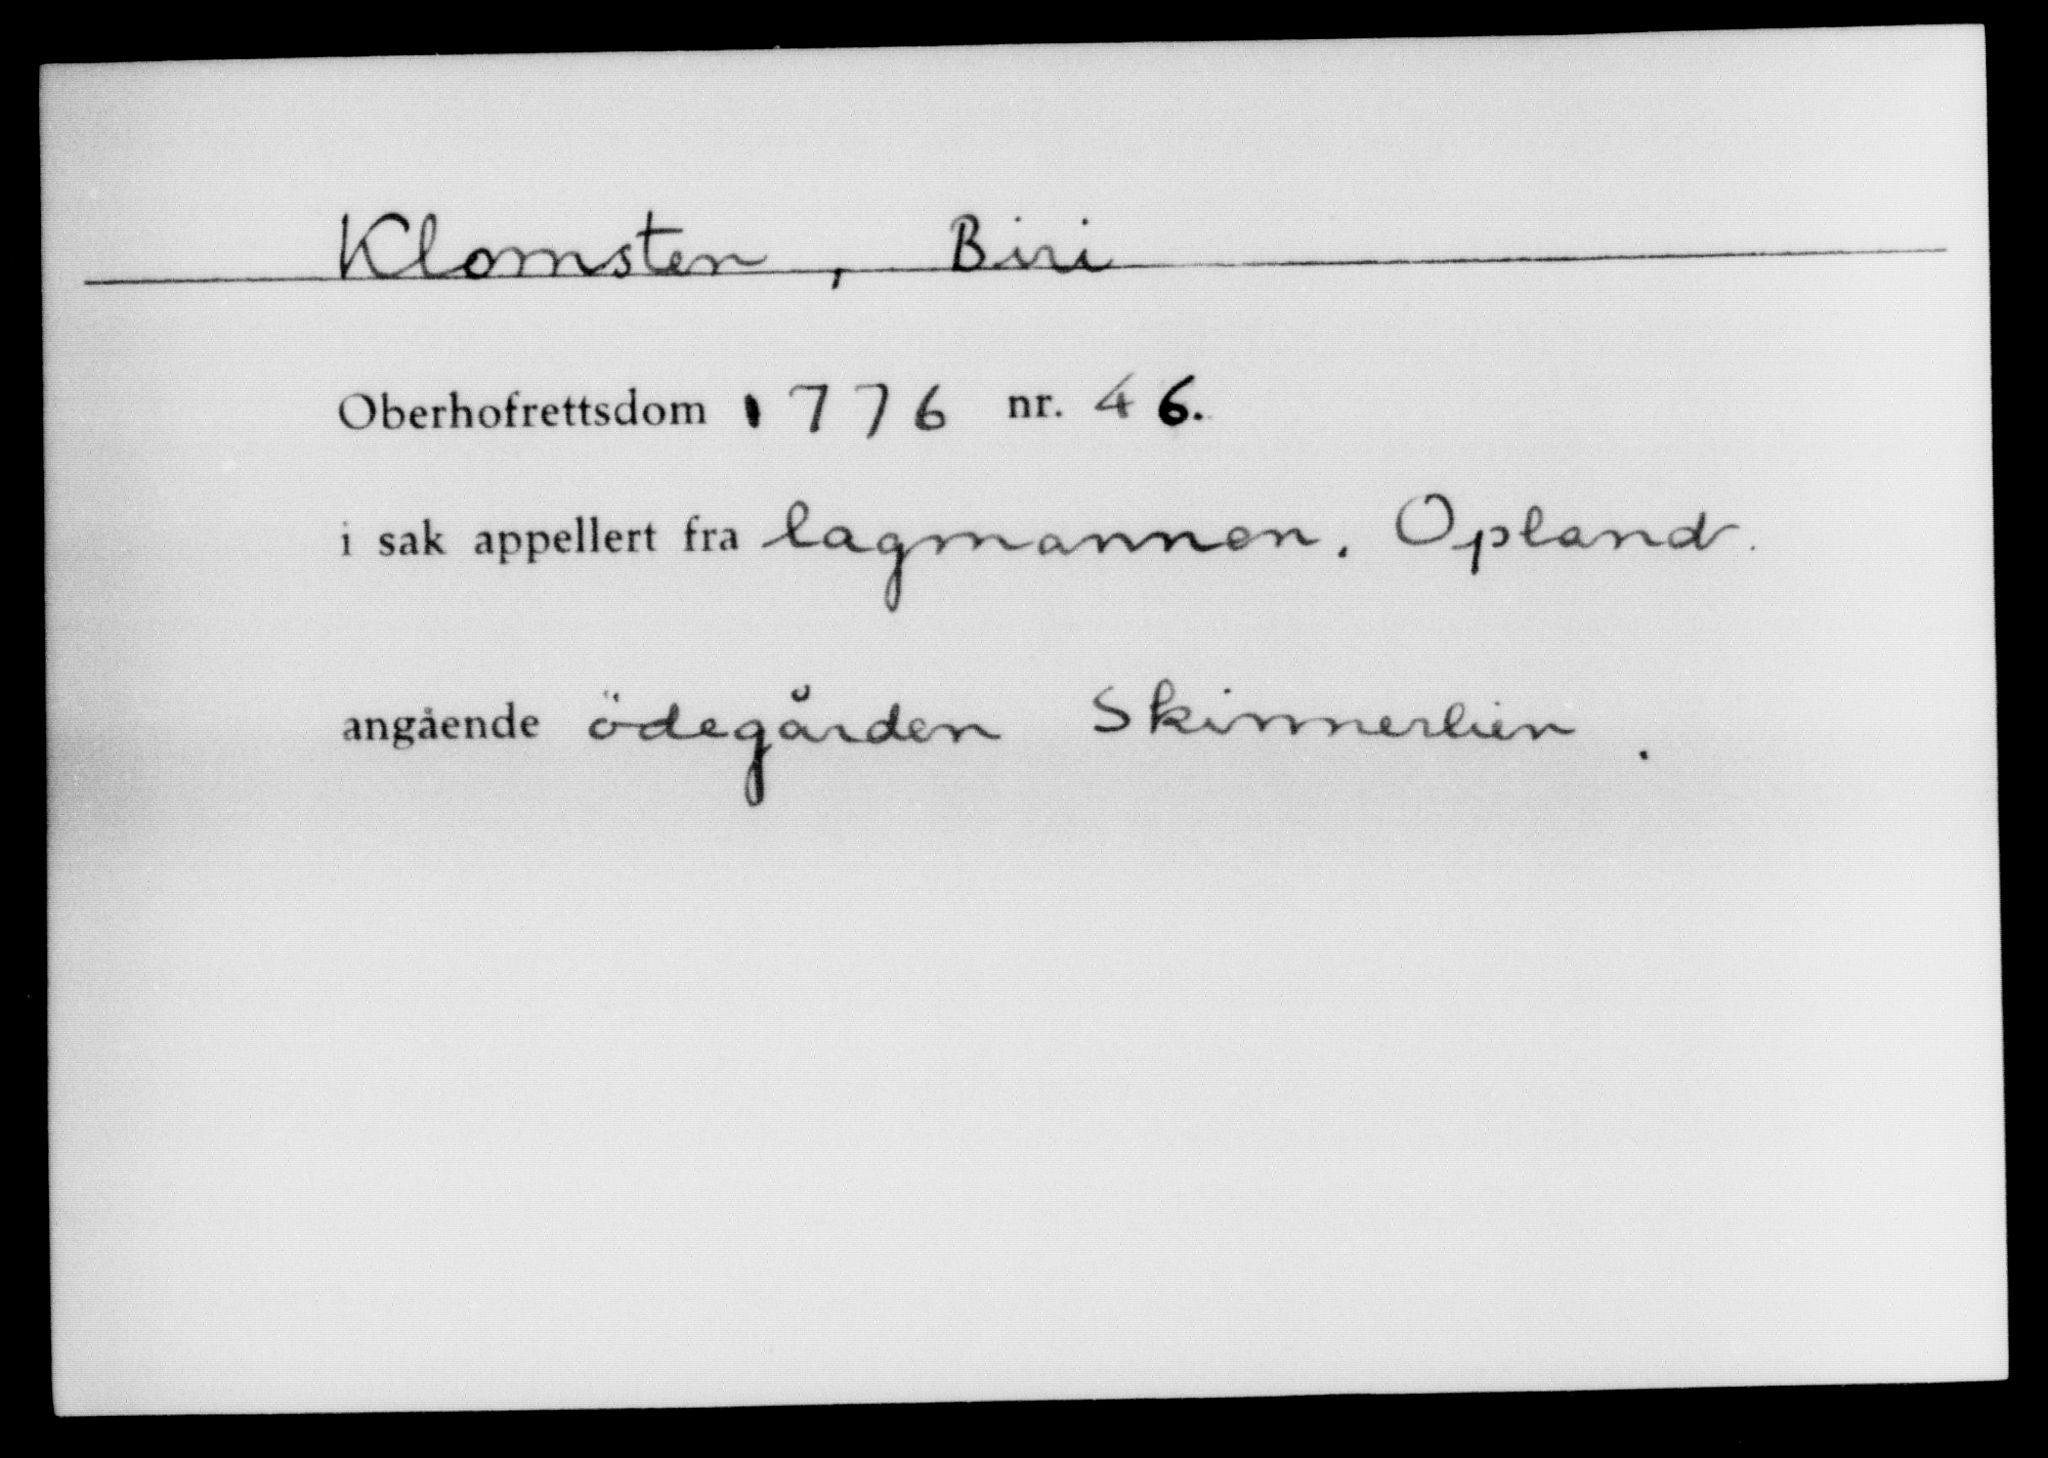 Klomsten, Biri
Oberhofrettsdom 1776 nr. 46.
i sak appellert fra lagmannen. Opland.
angående ödegården Skinnerlien.